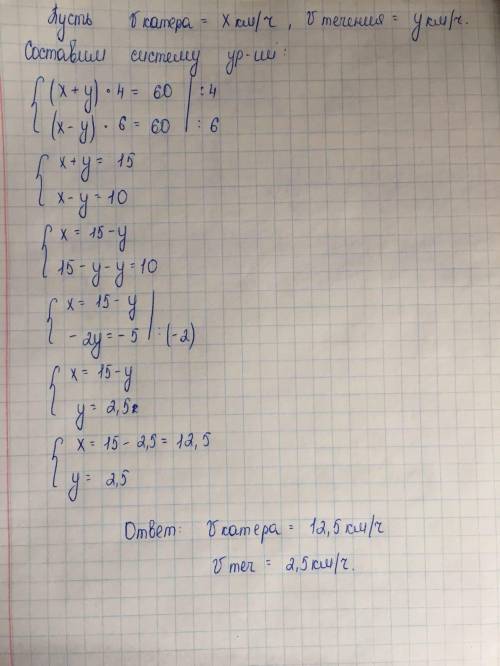 Пусть v катера = x км/ч, v течения = y км/ч.
Составим систему ур-ий:
(x+y) · 4 = 60 | :4
(x-y) · 6 = 60 | :6
x+y = 15
x-y = 10
x = 15-y
15-y-y=10
x = 15-y
-2y = -5 | :(-2)
x = 15-y
y = 2,5
x = 15-2,5 = 12,5
y = 2,5
Ответ: v катера = 12,5 км/ч
v теч = 2,5 км/ч.